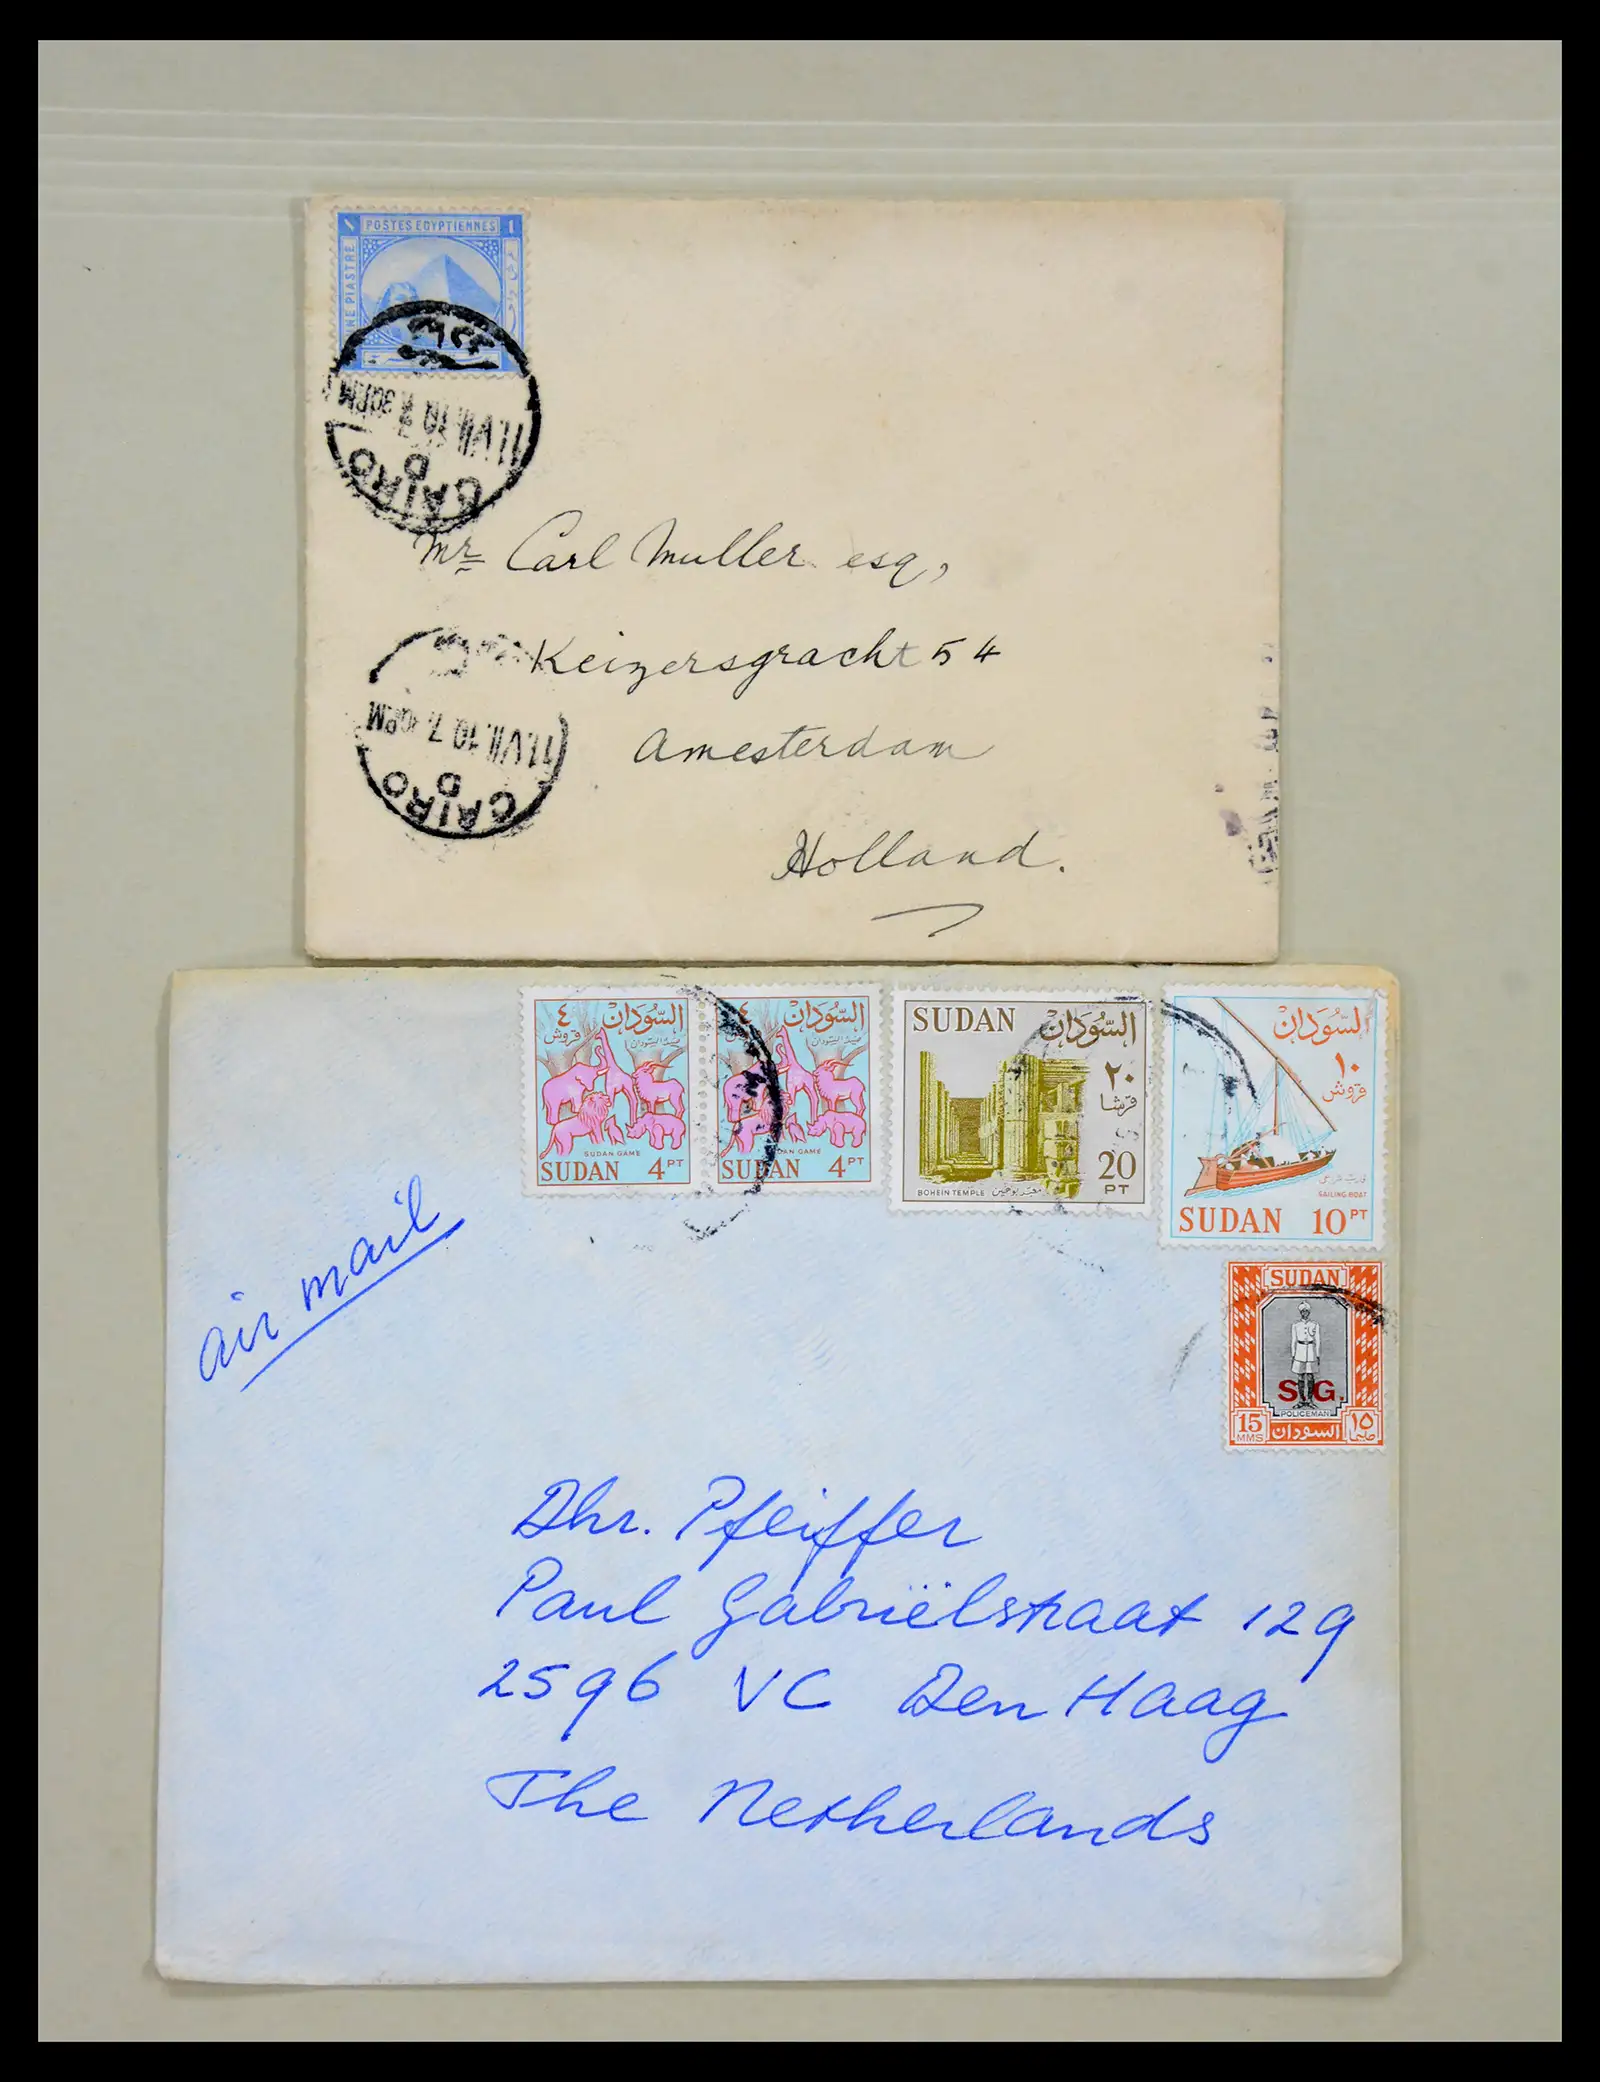 ١ POSTES EGYPTIENNES 1
ONE PIASTRE
11.VII.10 7.30PM
CAIRO
D
Mr Carl Muller esq,
Keizersgracht 54
Amesterdam
Holland.
11.VII.10 7.30PM
CAIRO
D
السودان ٤ قروش
صيد السودان
SUDAN GAME
SUDAN 4 PT
السودان ٤ قروش
صيد السودان
SUDAN GAME
SUDAN 4 PT
SUDAN السودان
٢٠ قرشا
20 PT
BOHEIN TEMPLE معبد بوهين
السودان
١٠ قروش
SAILING BOAT
SUDAN 10 PT
SUDAN
S.G.
POLICEMAN
15 MMS السودان ١٥ مليما
air mail
Dhr. Pfeiffer
Paul Gabriëlstraat 129
2596 VC Den Haag
The Netherlands